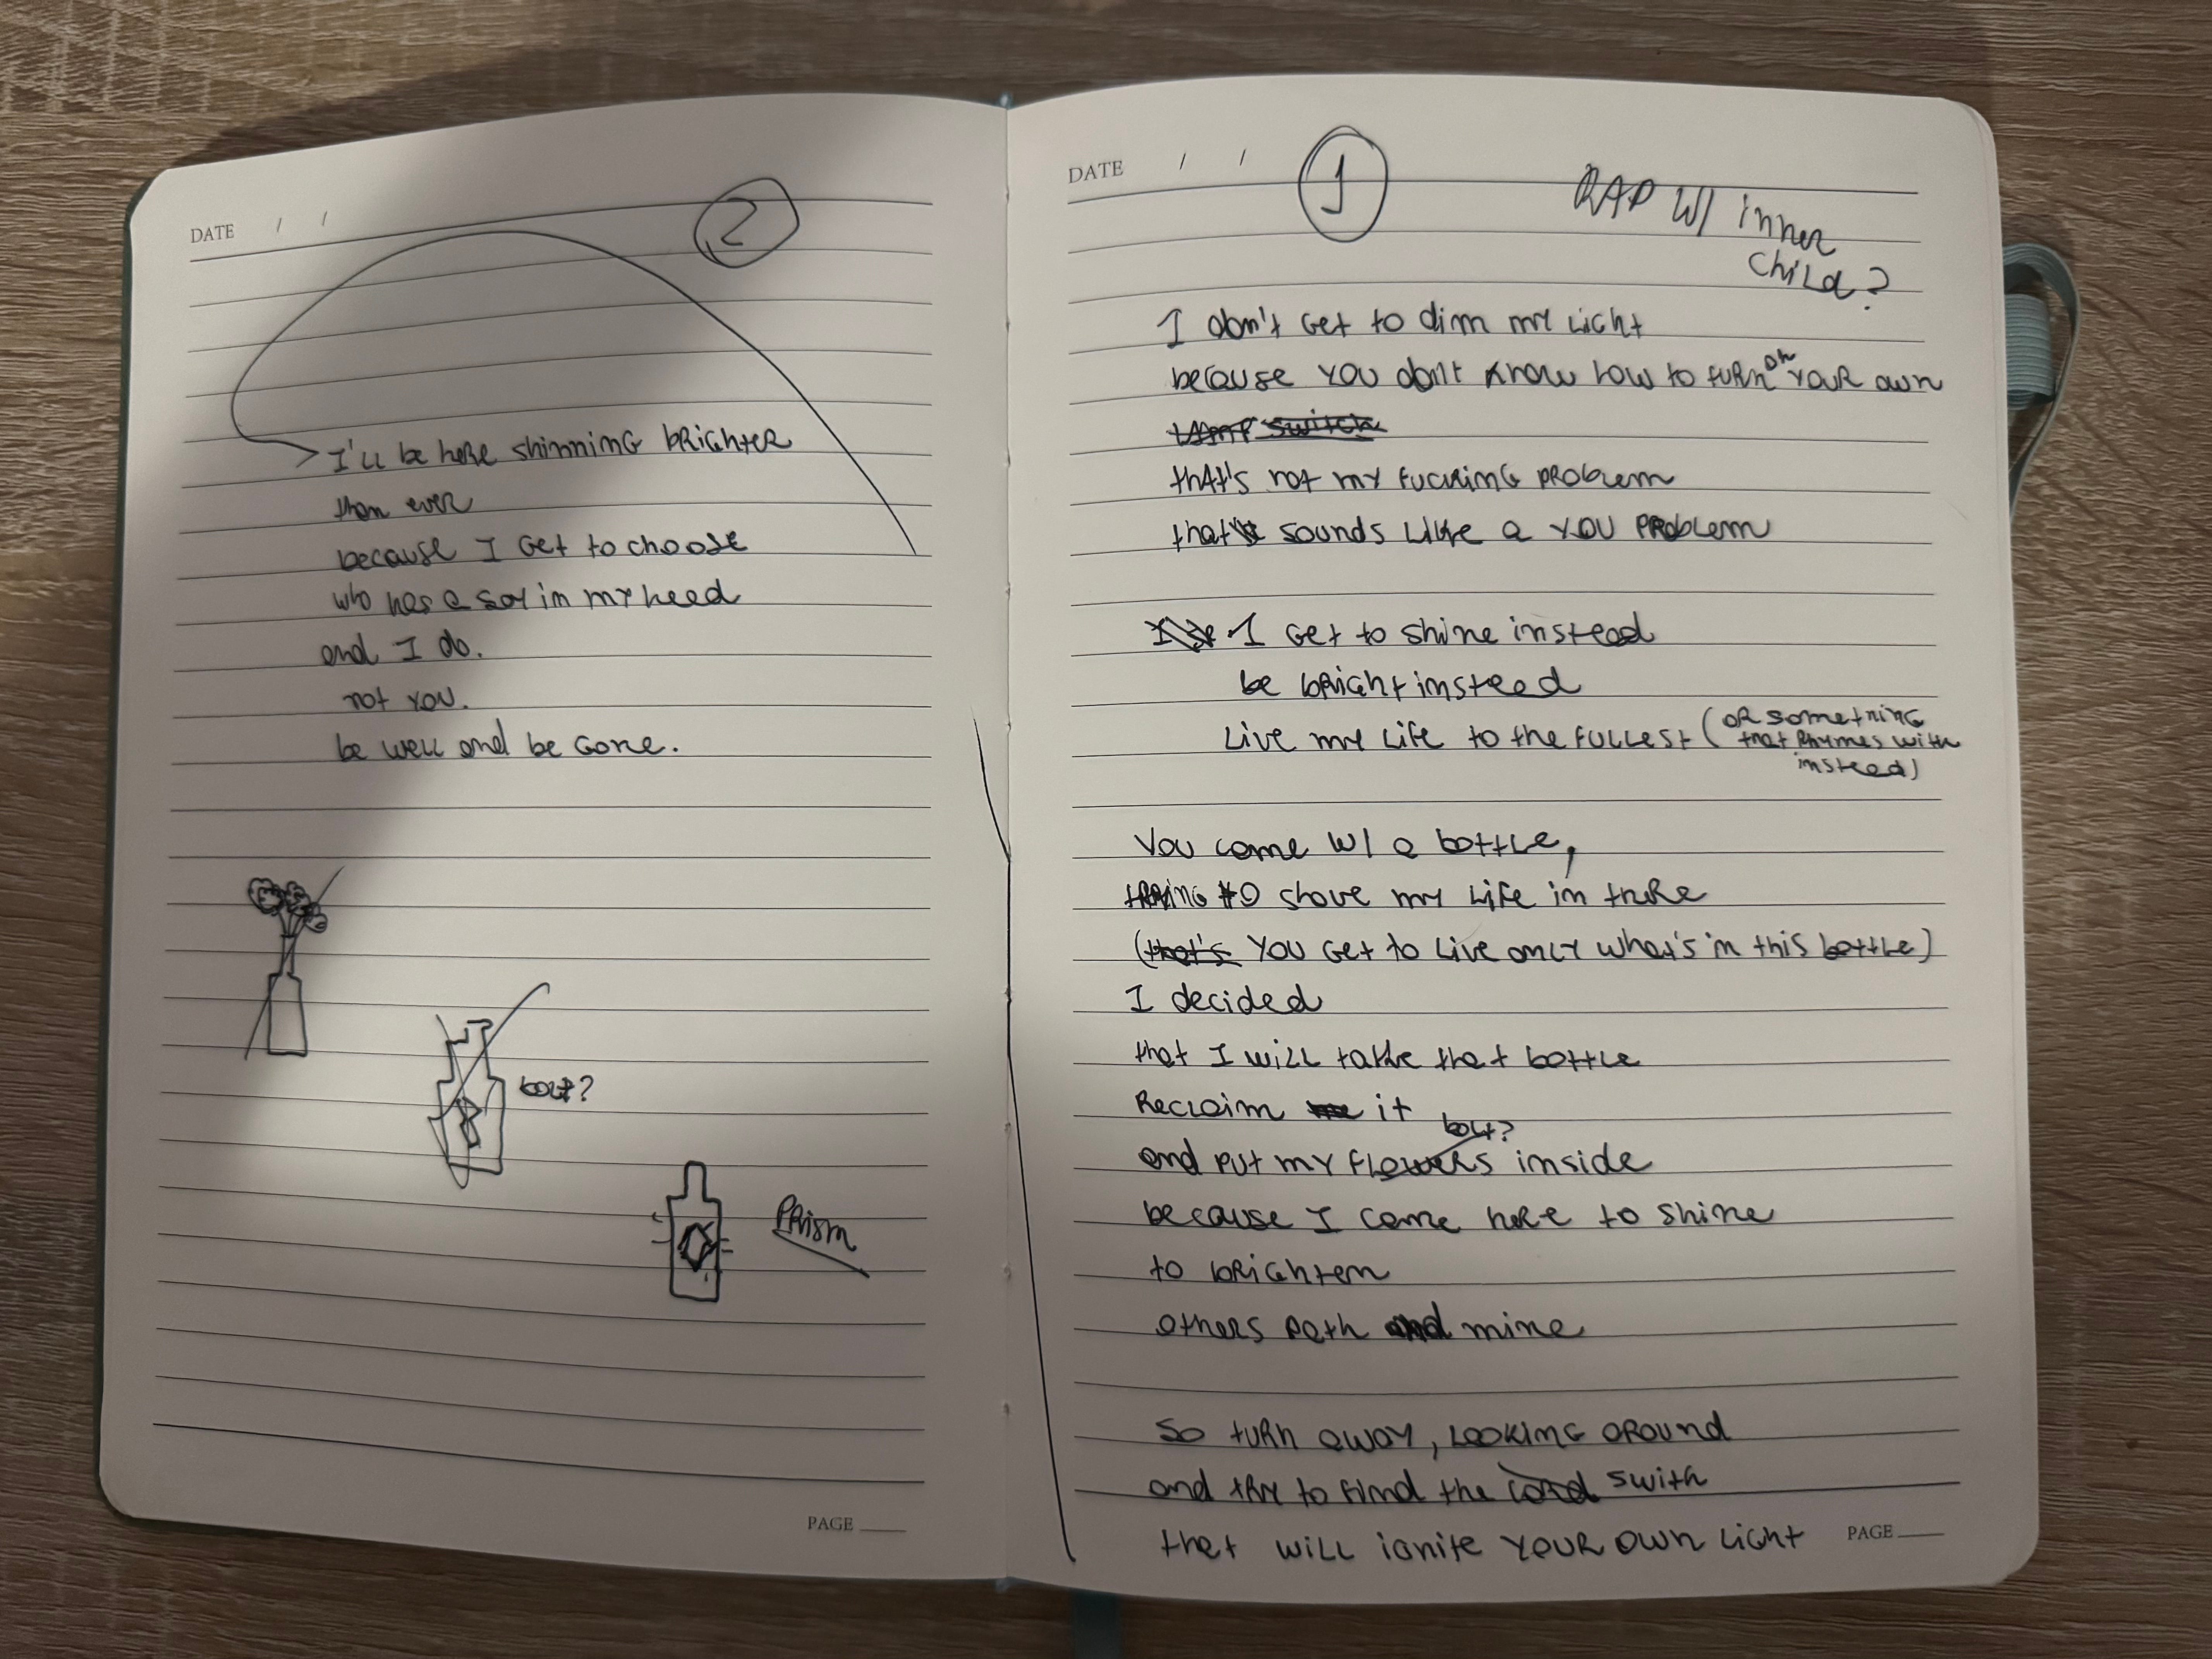 DATE / /
1
RAP W/ inner
child?
I don't get to dim my light
because you don't know how to turn on your own
lamp switch
that's not my fucking problem
that sounds like a you problem
I get to shine instead
be bright instead
Live my life to the fullest (or something
that rhymes with
instead)
You come w/ a bottle,
trying to shove my life in there
(that's you get to live only what's in this bottle)
I decided
that I will take that bottle
Reclaim it
bolt?
and put my flowers inside
because I came here to shine
to brighten
others path and mine
So turn away, looking around
and try to find the swith
that will ignite your own light
PAGE
DATE / /
2
I'll be here shinning brighter
than ever
because I get to choose
who has a say in my head
and I do.
not you.
be well and be gone.
bolt?
Prism
PAGE